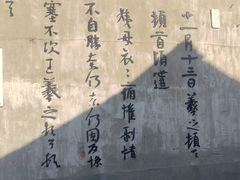 十一月十三日羲之頓首
頓首頃遘
姨母哀哀痛摧剝情
不自勝奈何奈何因反慘
塞不次王羲之頓首頓